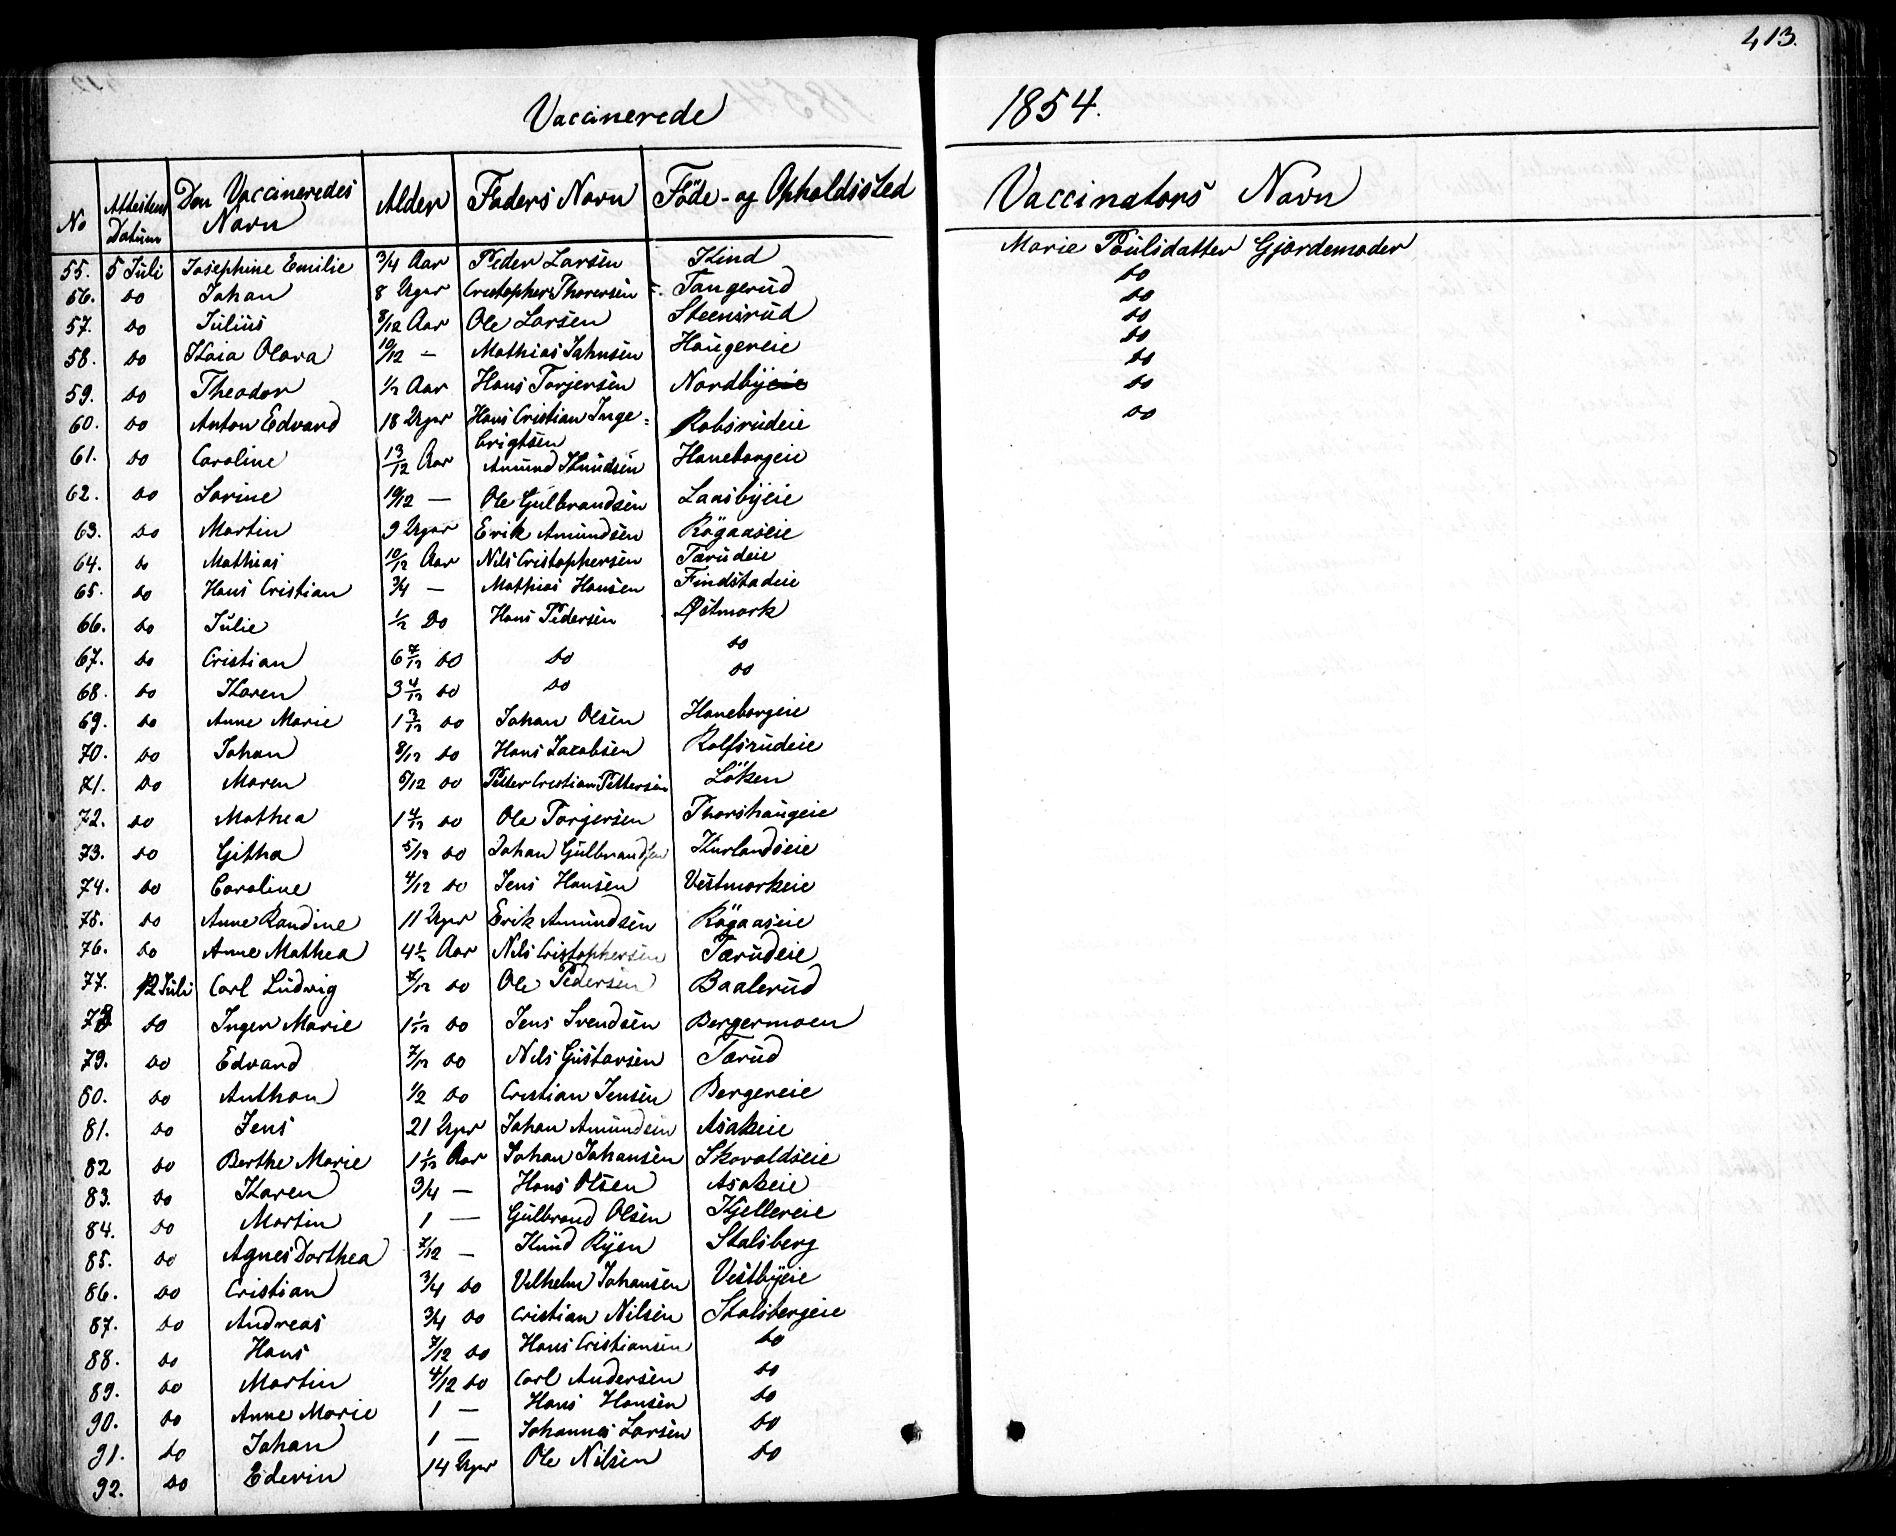 413.
Vaccinerede 1854.
No Attestens Datum Den Vaccineredes Navn Alder Faders Navn Föde- og Opholdssted Vaccinators Navn
55. 5 Juli Josephine Emilie 3/4 Aar Peder Larsen Kind Marie Poulsdatter Gjordemoder
56. do Johan 8 Uger Cristopher Thorersen Tangerud do
57. do Julius 8/12 Aar Ole Larsen Steensrud do
58. do Kaia Olava 10/12 — Mathias Jahnsen Haugereie do
59. do Theodor 1/2 Aar Hans Torjersen Nordbyeie do
60. do Anton Edvard 18 Uger Hans Cristian Inge= Robsrudeie do
brigtsen
61. do Caroline 13/12 Aar Amund Knudsen Haneborgeie do
62. do Sorine 10/12 — Ole Gulbrandsen Laasbyeie do
63. do Martin 9 Uger Erik Amundsen Rögaaseie
64. do Mathias 10/12 Aar Nils Cristophersen Tærudeie
65. do Hans Cristian 3/4 — Mathias Hansen Findstadeie
66. do Julie 1/2 Do Hans Pedersen Østmork
67. do Cristian 6 7/12 do do do
68. do Karen 3 4/12 do do do
69. do Anne Marie 1 3/12 do Johan Olsen Haneborgeie
70. do Johan 8/12 do Hans Jacobsen Rolfsrudeie
71. do Maren 5/12 do Petter Cristian Pettersen Löken
72. do Mathea 1 4/12 do Ole Torjersen Thorshaugeie
73. do Githa 5/12 do Johan Gulbrandsen Kurlandseie
74. do Caroline 4/12 do Jens Hansen Vestmorkeie
75. do Anne Randine 11 Uger Erik Amundsen Rögaaseie
76. do Anne Mathea 4 1/2 Aar Nils Cristophersen Tærudeie
77. 12 Juli Carl Ludvig 7/12 do Ole Pedersen Baalerud
78 do Inger Marie 1 1/12 do Jens Svendsen Bergermoen
79. do Edvard 7/12 do Nils Gustavsen Tærud
80. do Anthon 1/2 do Cristian Jensen Bergereie
81. do Jens 21 Uger Johan Amundsen Asakeie
82 do Berthe Marie 1 1/12 Aar Johan Johansen Skovaldseie
83. do Karen 3/4 — Hans Olsen Asakeie
84. do Martin 1 — Gulbrand Olsen Kjellereie
85. do Agnes Dorthea 7/12 — Knud Ryen Stalsberg
86. do Cristian 3/4 do Vilhelm Johansen Vestbyeie
87. do Andreas 3/4 do Cristian Nilsen Stalsbergeie
88. do Hans 7/12 do Hans Cristiansen do
89. do Martin 4/12 do Carl Andersen do
90. do Anne Marie 1 — Hans Hansen do
91. do Johan 1 — Johannes Larsen do
92. do Edevin 14 Uger Ole Nilsen do